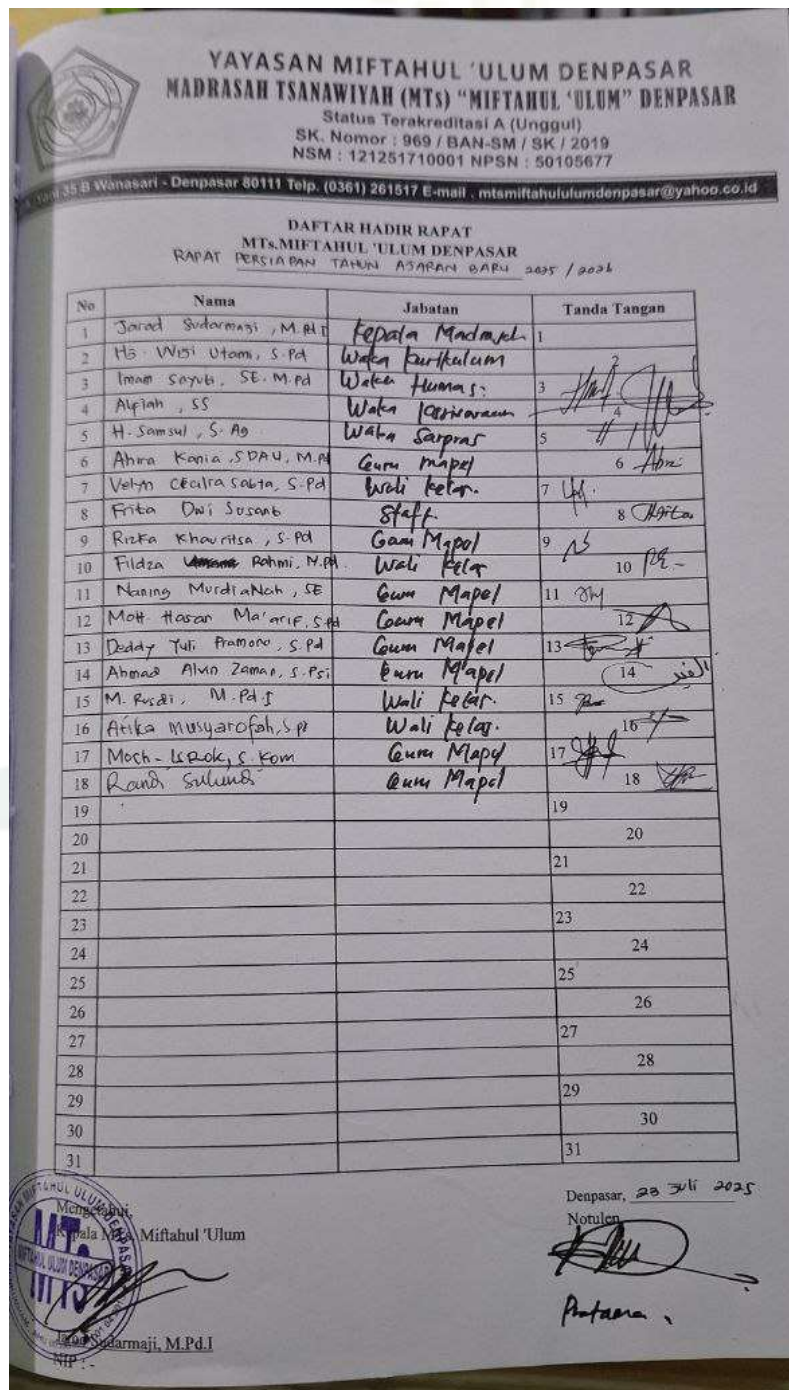 YAYASAN MIFTAHUL 'ULUM DENPASAR
MADRASAH TSANAWIYAH (MTs) "MIFTAHUL 'ULUM" DENPASAR
Status Terakreditasi A (Unggul)
SK. Nomor : 969 / BAN-SM / SK / 2019
NSM : 121251710001 NPSN : 50105677
35 B Wanasari - Denpasar 80111 Telp. (0361) 261517 E-mail . mtsmiftahululumdenpasar@yahoo.co.id
DAFTAR HADIR RAPAT
MTs.MIFTAHUL 'ULUM DENPASAR
RAPAT PERSIAPAN TAHUN AJARAN BARU 2025 / 2026
No Nama Jabatan Tanda Tangan
1 Jarod Sudarmaji, M.Pd.I Kepala Madrasah 1
2 Hj. Wiji Utami, S.Pd Waka Kurikulum 2
3 Imam Sayuti, SE. M.Pd Waka Humas 3
4 Alfiah, SS Waka Kesiswaan 4
5 H. Samsul, S.Ag Waka Sarpras 5
6 Kania, M.Pd Guru Mapel 6
7 Velyn S.Pd Wali Kelas. 7
8 Frita Dwi Staff. 8
9 Rizka S.Pd Guru Mapel 9
10 Fildza Rahmi, M.Pd. Wali Kelas 10
11 Naning Murdianah, SE Guru Mapel 11
12 Moh Hasan Ma'arif, S.Pd Guru Mapel 12
13 Deddy Yuli Pramono, S.Pd Guru Mapel 13
14 Ahmad Alvin Zaman, S.Psi Guru Mapel 14
15 M. Rusdi, M.Pd.I Wali Kelas. 15
16 Atika Musyarofah, S.Pd Wali Kelas. 16
17 Moch. Isrok, S.Kom Guru Mapel 17
18 Randi Guru Mapel 18
19 19
20 20
21 21
22 22
23 23
24 24
25 25
26 26
27 27
28 28
29 29
30 30
31 31
Denpasar, 23 Juli 2025
Mengetahui, Notulen
Kepala MTs. Miftahul 'Ulum
Jarod Sudarmaji, M.Pd.I
NIP : -